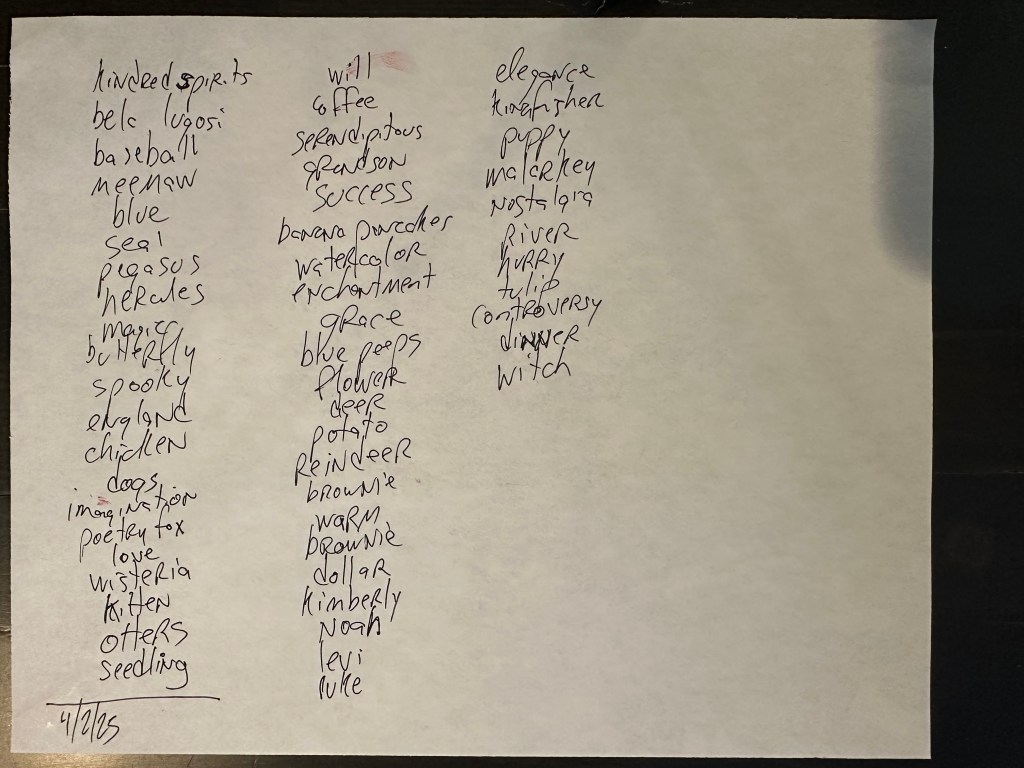 kindred spirits
bela lugosi
baseball
meemaw
blue
seal
pegasus
hercules
magic
butterfly
spooky
england
chicken
dogs
imagination
poetry fox
love
wisteria
kitten
otters
seedling
4/2/25
will
coffee
serendipitous
grandson
success
banana pancakes
watercolor
enchantment
grace
blue peeps
flower
deer
potato
reindeer
brownie
warm
brownie
dollar
kimberly
noah
levi
luke
elegance
kingfisher
puppy
malarkey
nostalgia
river
hurry
tulip
controversy
dinner
witch